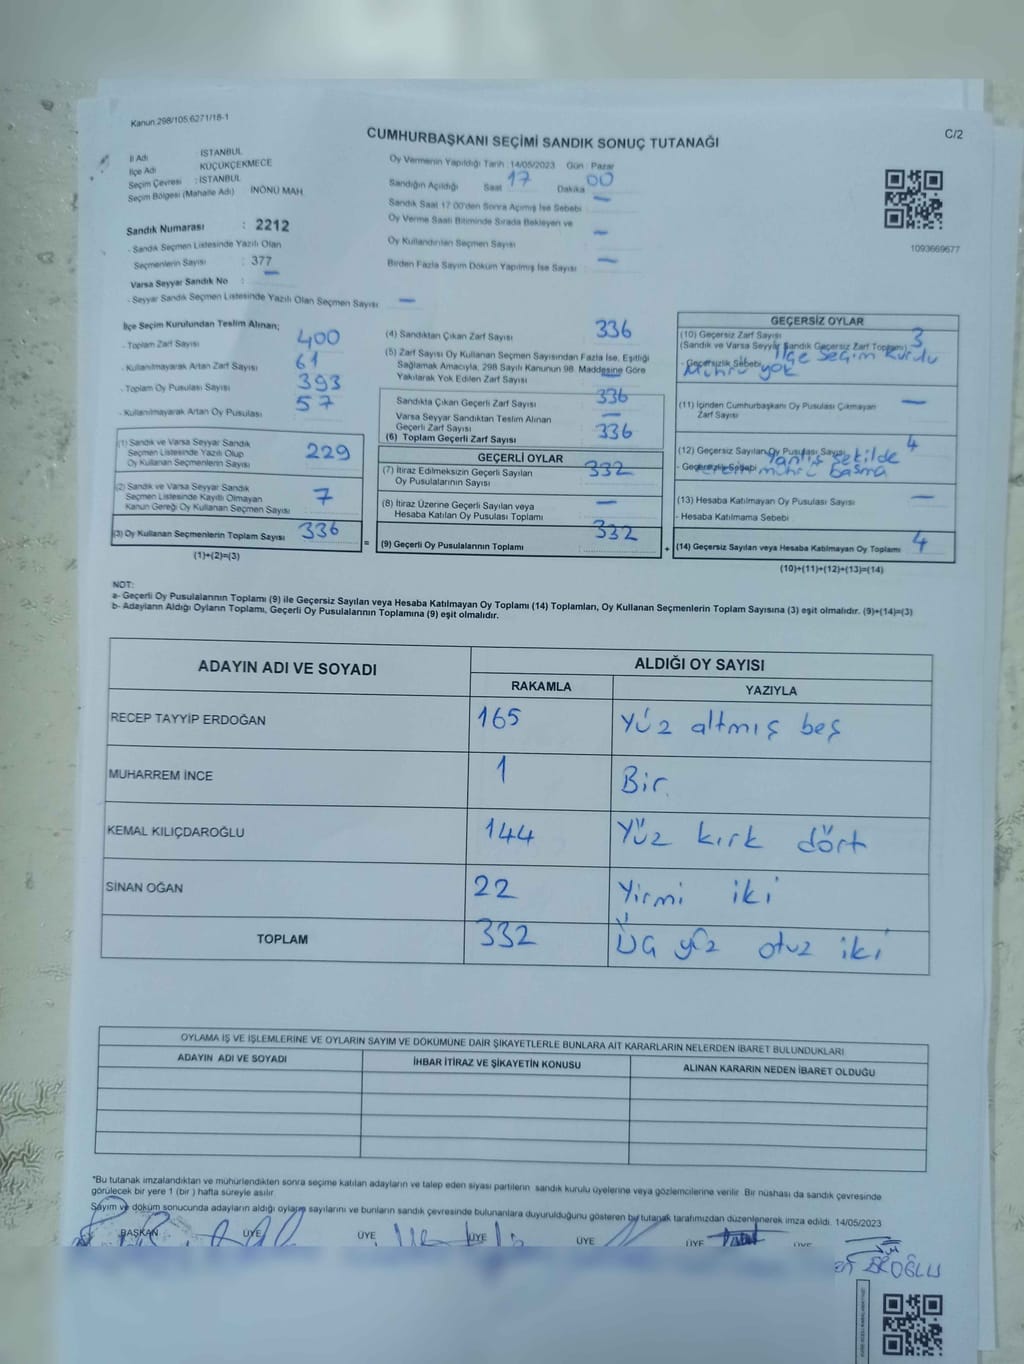 Kanun.298/105,6271/18-1
CUMHURBAŞKANI SEÇİMİ SANDIK SONUÇ TUTANAĞI
C/2
İl Adı : İSTANBUL
İlçe Adı : KÜÇÜKÇEKMECE
Seçim Çevresi : İSTANBUL
Seçim Bölgesi (Mahalle Adı) : İNÖNÜ MAH.
Sandık Numarası : 2212
- Sandık Seçmen Listesinde Yazılı Olan
Seçmenlerin Sayısı : 377
Varsa Seyyar Sandık No : —
- Seyyar Sandık Seçmen Listesinde Yazılı Olan Seçmen Sayısı —
Oy Vermenin Yapıldığı Tarih :14/05/2023 Gün : Pazar
Sandığın Açıldığı Saat 17 Dakika 00
Sandık Saat 17:00'den Sonra Açımış İse Sebebi —
Oy Verme Saati Bitiminde Sırada Bekleyen ve
Oy Kullandırılan Seçmen Sayısı —
Birden Fazla Sayım Döküm Yapılmış İse Sayısı —
1093669677
İlçe Seçim Kurulundan Teslim Alınan;
- Toplam Zarf Sayısı 400
- Kullanılmayarak Artan Zarf Sayısı 61
- Toplam Oy Pusulası Sayısı 393
- Kullanılmayarak Artan Oy Pusulası 57
(1) Sandık ve Varsa Seyyar Sandık
Seçmen Listesinde Yazılı Olup
Oy Kullanan Seçmenlerin Sayısı 229
(2) Sandık ve Varsa Seyyar Sandık
Seçmen Listesinde Kayıtlı Olmayan
Kanun Gereği Oy Kullanan Seçmen Sayısı 7
(3) Oy Kullanan Seçmenlerin Toplam Sayısı 336
(1)+(2)=(3)
(4) Sandıktan Çıkan Zarf Sayısı 336
(5) Zarf Sayısı Oy Kullanan Seçmen Sayısından Fazla İse, Eşitliği
Sağlamak Amacıyla, 298 Sayılı Kanunun 98. Maddesine Göre
Yakılarak Yok Edilen Zarf Sayısı —
Sandıkta Çıkan Geçerli Zarf Sayısı 336
Varsa Seyyar Sandıktan Teslim Alınan
Geçerli Zarf Sayısı —
(6) Toplam Geçerli Zarf Sayısı 336
GEÇERLİ OYLAR
(7) İtiraz Edilmeksizin Geçerli Sayılan
Oy Pusulalarının Sayısı 332
(8) İtiraz Üzerine Geçerli Sayılan veya
Hesaba Katılan Oy Pusulası Toplamı —
= (9) Geçerli Oy Pusulalarının Toplamı 332
GEÇERSİZ OYLAR
(10) Geçersiz Zarf Sayısı 3
(Sandık ve Varsa Seyyar Sandık Geçersiz Zarf Toplamı)
- Geçersizlik Sebebi İlçe Seçim Kurulu
Mührü yok
(11) İçinden Cumhurbaşkanı Oy Pusulası Çıkmayan
Zarf Sayısı —
(12) Geçersiz Sayılan Oy Pusulası Sayısı 4
- Geçersizlik Sebebi Yanlış şekilde
mührü basma
(13) Hesaba Katılmayan Oy Pusulası Sayısı —
- Hesaba Katılmama Sebebi
+ (14) Geçersiz Sayılan veya Hesaba Katılmayan Oy Toplamı 4
(10)+(11)+(12)+(13)=(14)
NOT:
a- Geçerli Oy Pusulalarının Toplamı (9) ile Geçersiz Sayılan veya Hesaba Katılmayan Oy Toplamı (14) Toplamları, Oy Kullanan Seçmenlerin Toplam Sayısına (3) eşit olmalıdır. (9)+(14)=(3)
b- Adayların Aldığı Oyların Toplamı, Geçerli Oy Pusulalarının Toplamına (9) eşit olmalıdır.
ADAYIN ADI VE SOYADI
ALDIĞI OY SAYISI
RAKAMLA YAZIYLA
RECEP TAYYİP ERDOĞAN 165 Yüz altmış beş
MUHARREM İNCE 1 Bir
KEMAL KILIÇDAROĞLU 144 Yüz kırk dört
SİNAN OĞAN 22 Yirmi iki
TOPLAM 332 Üç yüz otuz iki
OYLAMA İŞ VE İŞLEMLERİNE VE OYLARIN SAYIM VE DÖKÜMÜNE DAİR ŞİKAYETLERLE BUNLARA AİT KARARLARIN NELERDEN İBARET BULUNDUKLARI
ADAYIN ADI VE SOYADI İHBAR İTİRAZ VE ŞİKAYETİN KONUSU ALINAN KARARIN NEDEN İBARET OLDUĞU
*Bu tutanak imzalandıktan ve mühürlendikten sonra seçime katılan adayların ve talep eden siyasi partilerin sandık kurulu üyelerine veya gözlemcilerine verilir. Bir nüshası da sandık çevresinde
görülecek bir yere 1 (bir) hafta süreyle asılır.
Sayım ve döküm sonucunda adayların aldığı oyların sayılarını ve bunların sandık çevresinde bulunanlara duyurulduğunu gösteren bu tutanak tarafımızdan düzenlenerek imza edildi. 14/05/2023
BAŞKAN ÜYE ÜYE ÜYE ÜYE ÜYE ÜYE
EROĞLU